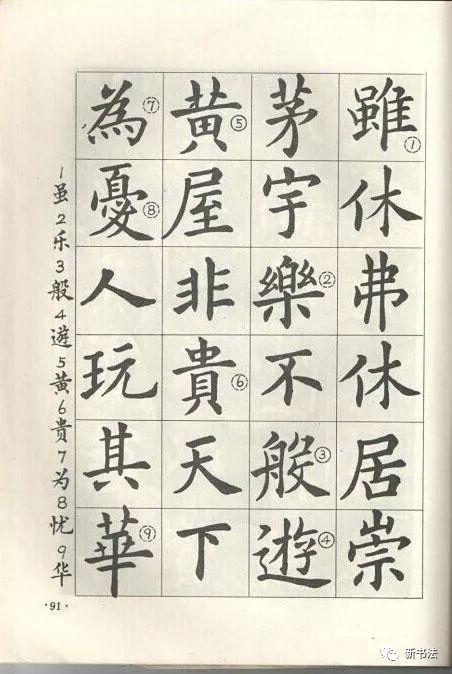 雖①休弗休居崇
茅宇樂②不般③遊④
黄⑤屋非貴⑥天下
為⑦憂⑧人玩其華⑨
1虽2乐3般4遊5黄6贵7为8忧9华
·91·
新书法